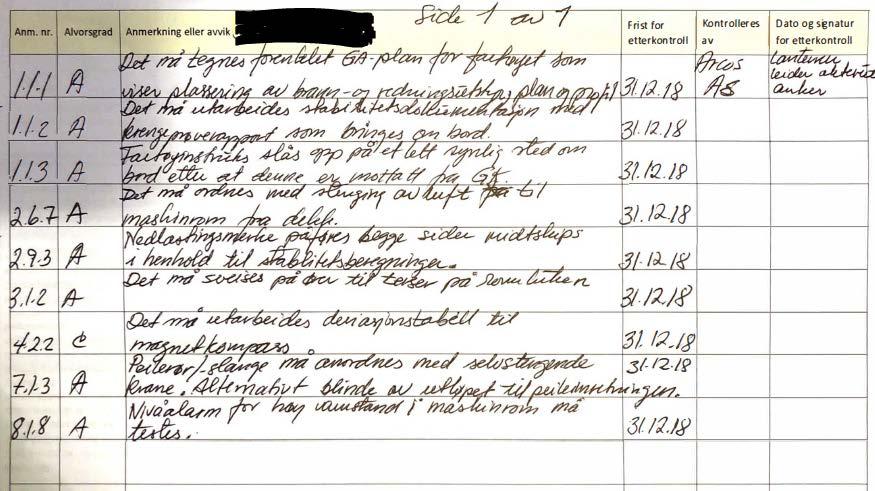 Side 1 av 1
Anm. nr. Alvorsgrad Anmerkning eller avvik Frist for etterkontroll Kontrolleres av Dato og signatur for etterkontroll
Det må tegnes forenklet GA-plan for fartøyet som
1.1.1 A viser plassering av brann- og redningsutstyr, plan og 31.12.18 Arcos AS Lanterner
leider
anker
Det må utarbeides stabilitetsdokumentasjon med
1.1.2 A krengeprøverapport som bringes om bord. 31.12.18
Fartøyinstruks slås opp på et lett synlig sted om
1.1.3 A bord etter at denne er mottatt fra 31.12.18
Det må ordnes med stenging av luft til
2.6.7 A maskinrom fra dekk. 31.12.18
Nedlastingsmerke påføres begge sider midtskips
2.9.3 A i henhold til stabilitetsberegninger. 31.12.18
Det må sveises på til på
3.1.2 A 31.12.18
Det må utarbeides deviasjonstabell til
4.2.2 C magnetkompass 31.12.18
Peilerør/-slange må anordnes med selvstengende 31.12.18
7.1.3 A krane. Alternativt blinde av utløpet til peileinnretningen.
Nivåalarm for høy vannstand i maskinrom må
8.1.8 A testes. 31.12.18